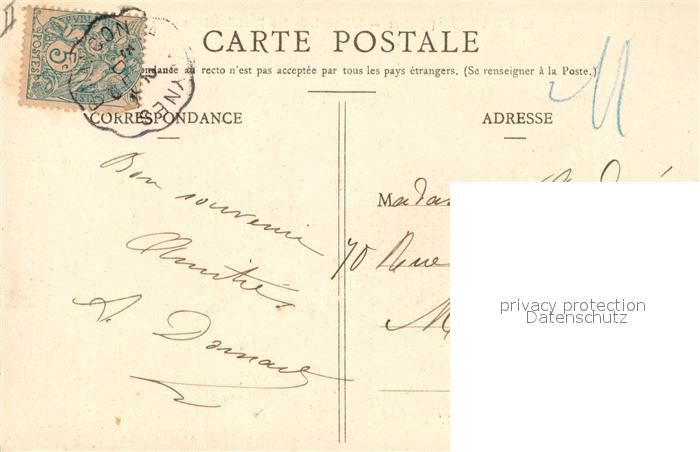 CARTE POSTALE
ndance au recto n'est pas acceptée par tous les pays étrangers. (Se renseigner à la Poste.)
CORRESPONDANCE
ADRESSE
Bon souvenir
Amitiés
A.
Mada
70 Rue
M
POSTES
5c
privacy protection
Datenschutz